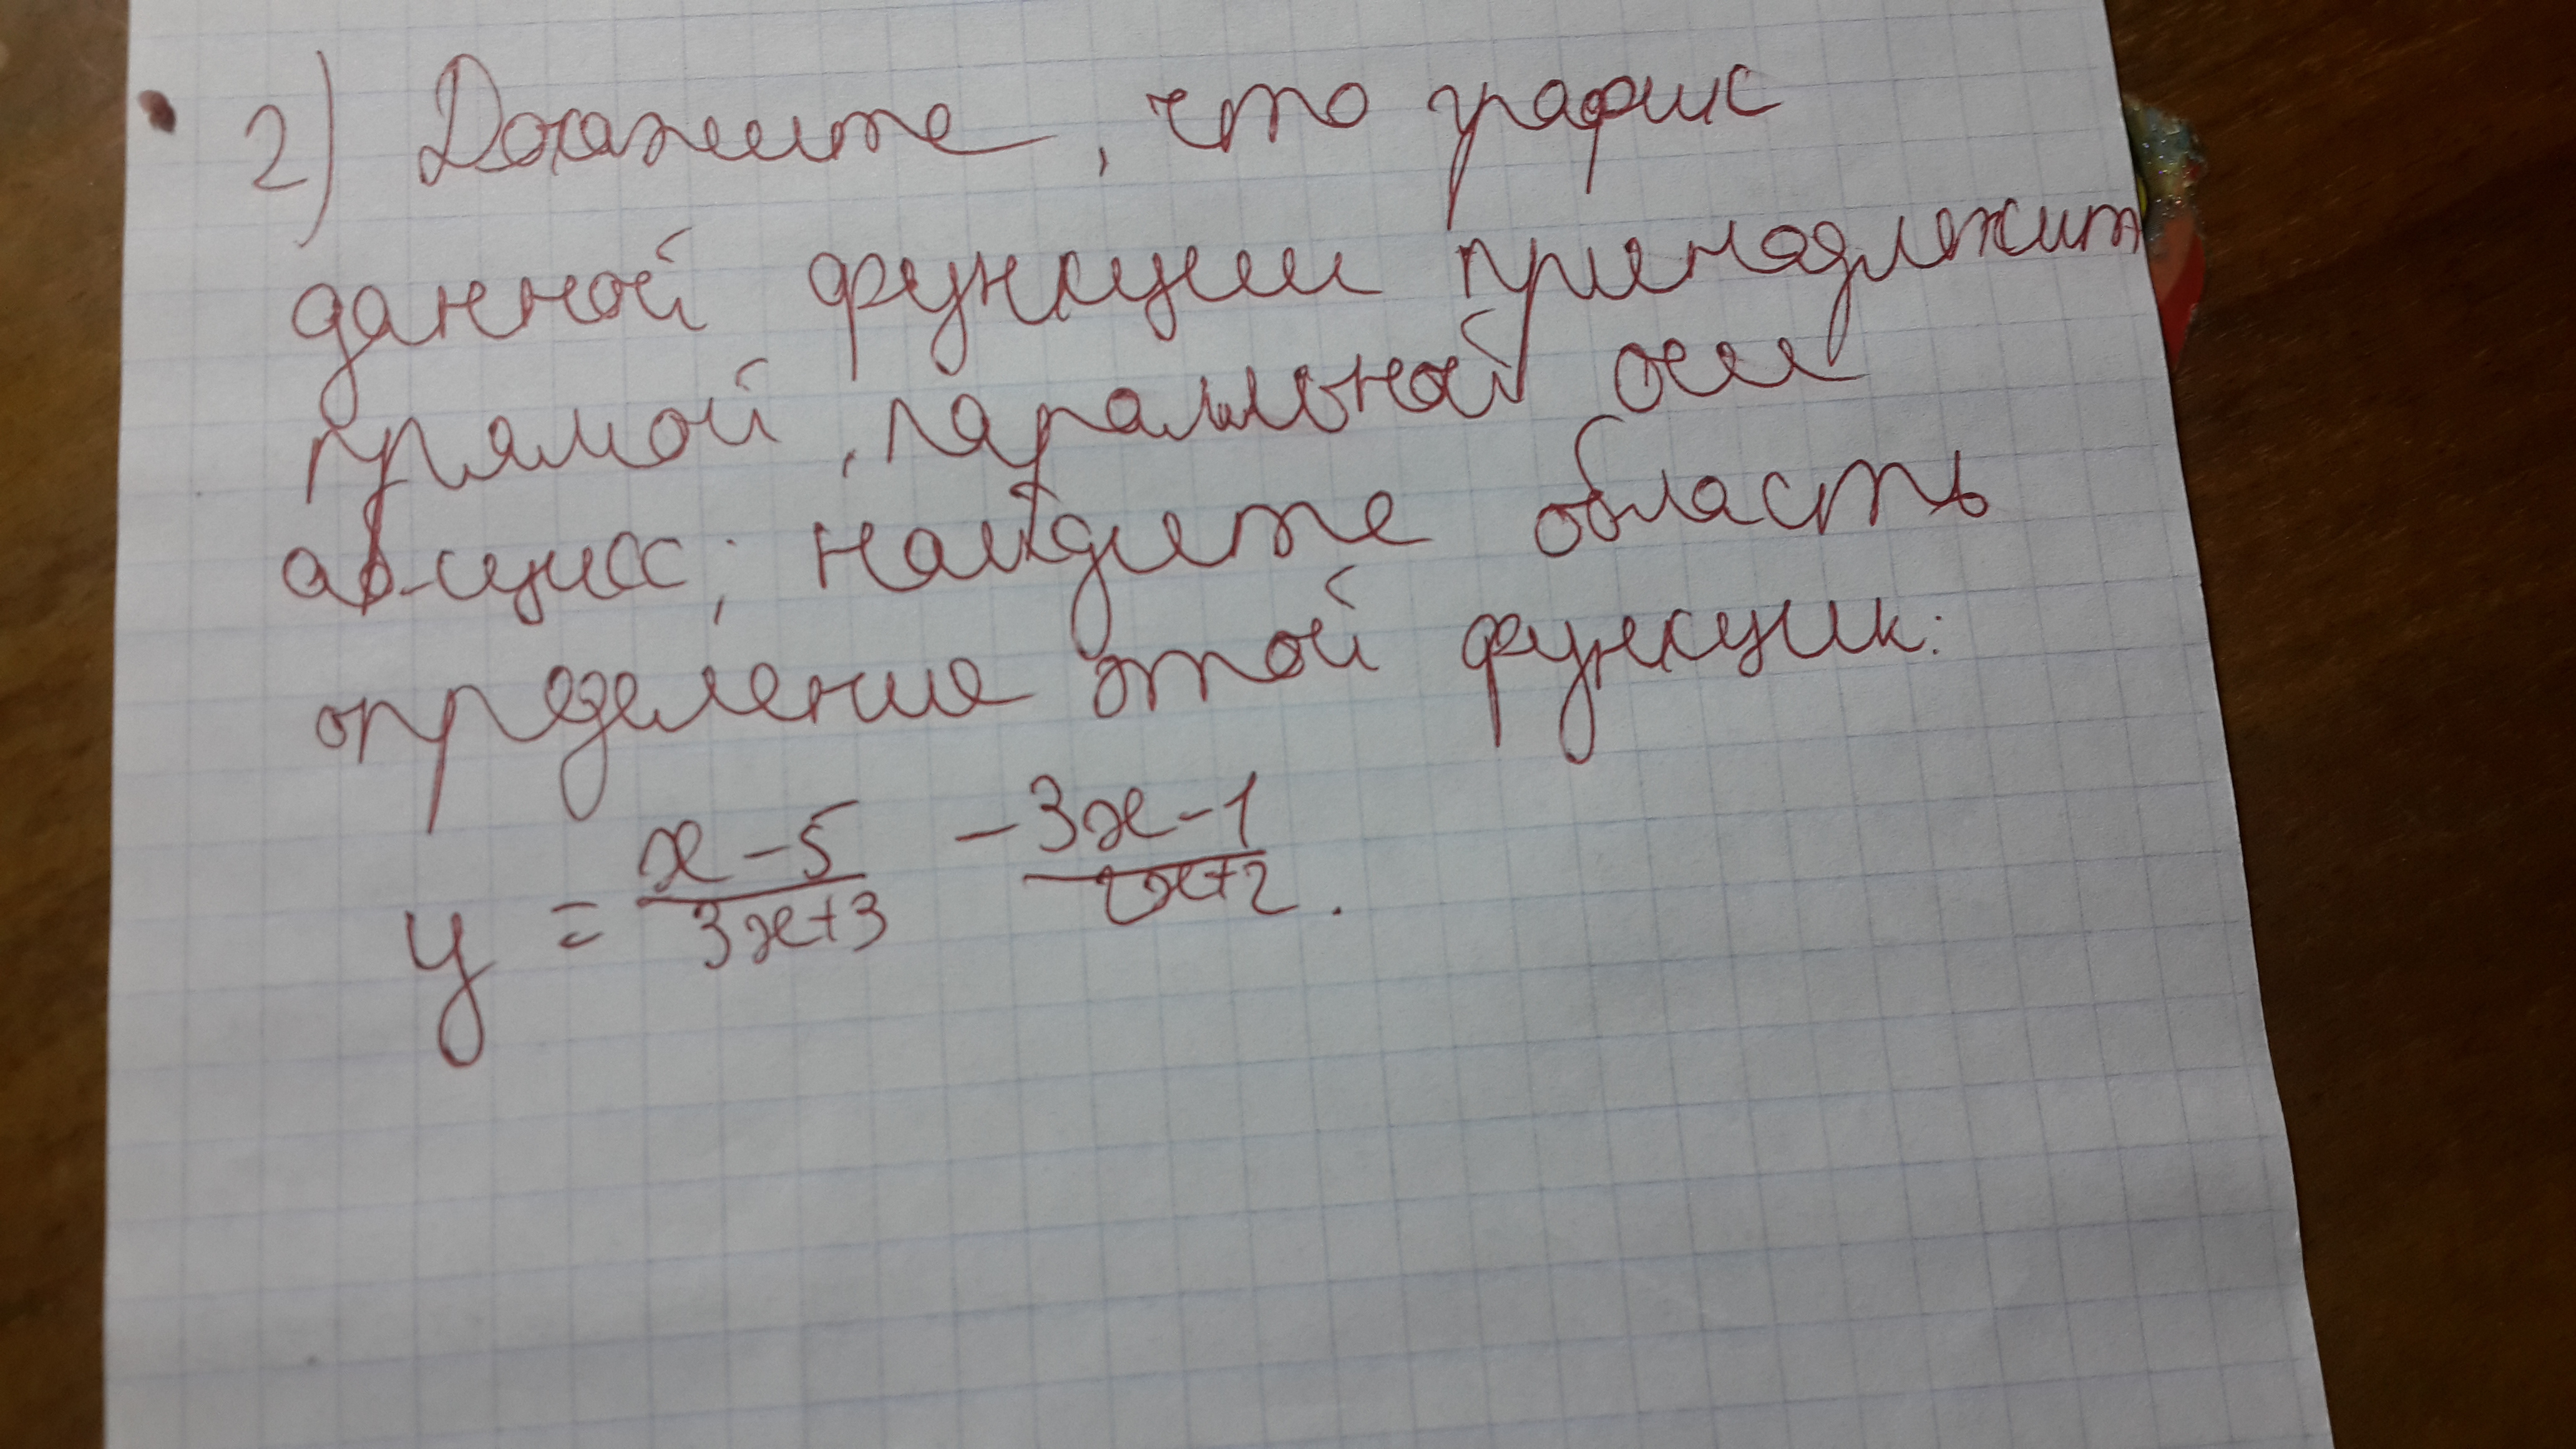 2) Докажите, что график
данной функции принадлежит
прямой, паральной оси
абсцисс; найдите область
определения этой функции:
y = \frac{x-5}{3x+3} - \frac{3x-1}{2x+2}.